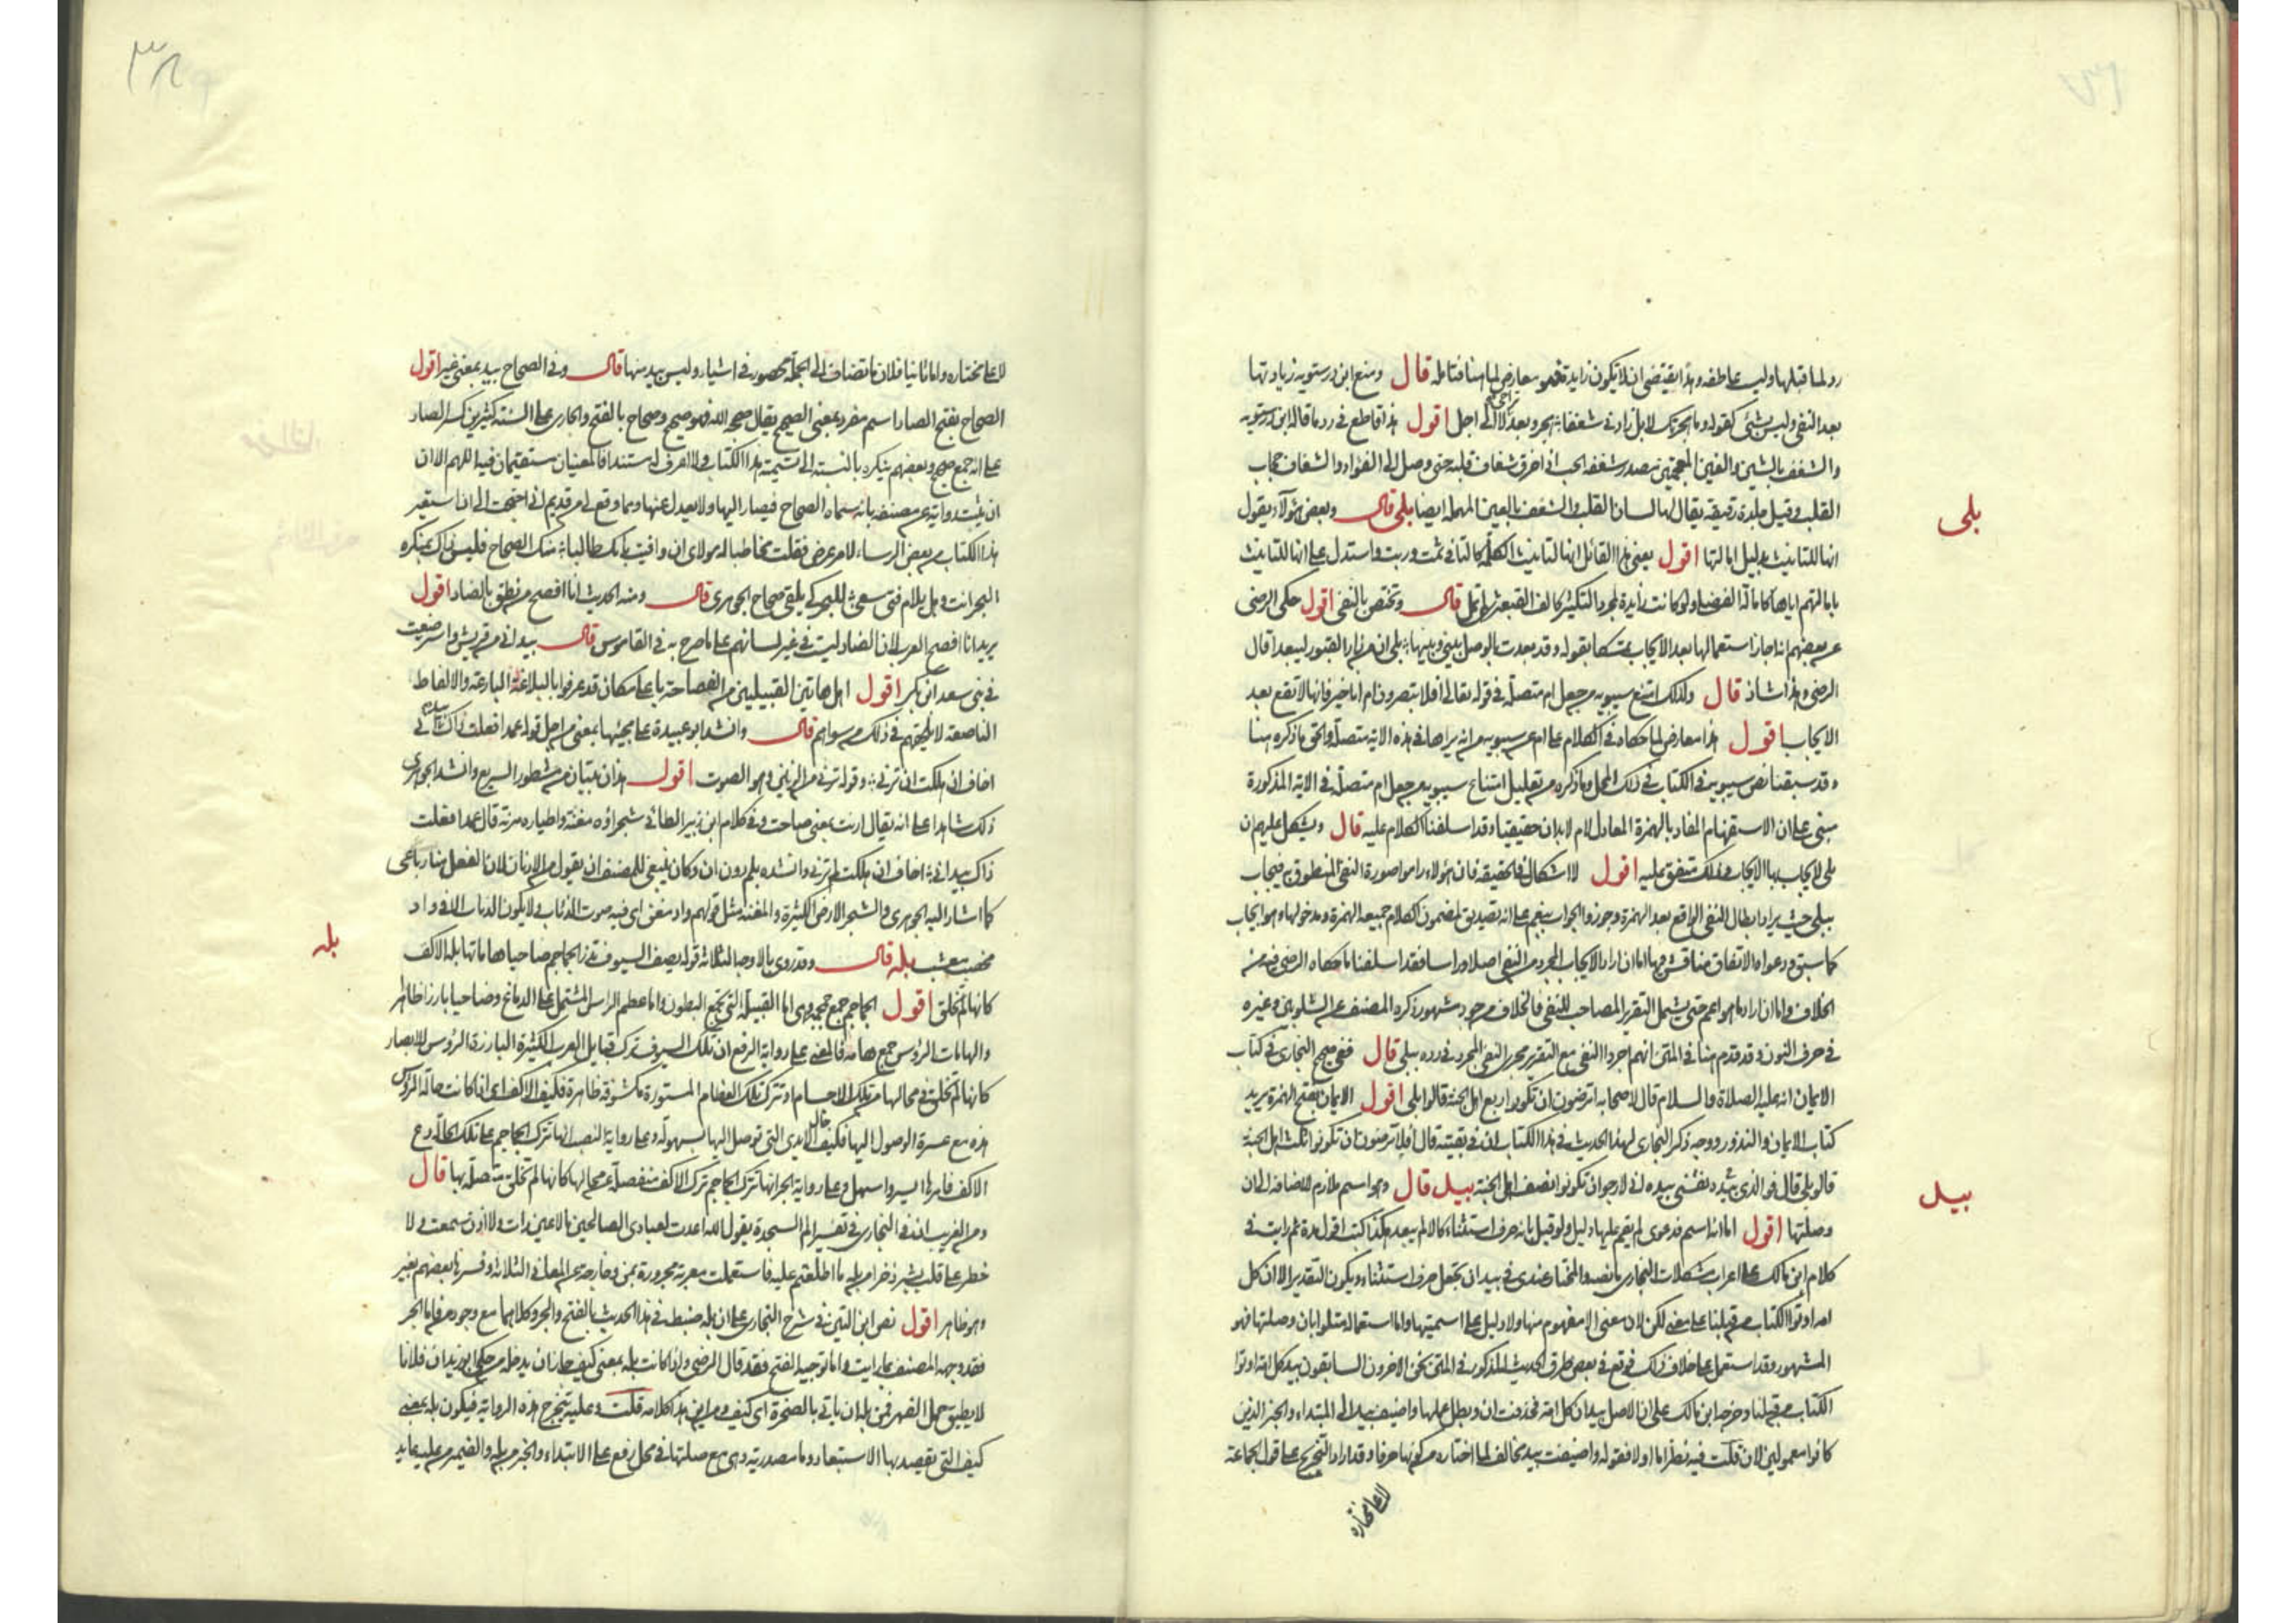 رد لما قبلها وليست عاطفة وهذا يقتضي ان لا يكون زايدة فهو معارض لما هنا فتامله قال ومنع ابن درستويه زيادتها
بعد النفي وليس بشئ كقوله وما هجرتك لا بل زادني شغفا هجر وبعد لا الى اجل اقول هذا قاطع في رد ما قاله ابن درستويه
والشغف بالشين والغين المعجمتين مصدر شغفه الحب اذا خرق شغاف قلبه حتى وصل الى الفؤاد والشغاف حجاب
القلب وقيل جلدة رقيقة يقال لها لسان القلب والشعف بالعين المهملة ايضا بلى قال وبعض هؤلاء يقول
بلى
انها للتانيث بدليل امالتها اقول يعني هذا القائل انها لتانيث الكلمة كالتا في ثمت وربت واستدل على انها للتانيث
بامالتهم اياها كامالة الفضلى ولو كانت زايدة لمجرد التكثير كالف القبعثرى لم تمل قال وتختص بالنفي اقول حكى الرضي
عن بعضهم انه اجاز استعمالها بعد الايجاب متمسكا بقوله وقد بعدت بالوصل بيني وبينها بلى ان من زار القبور ليبعدا قال
الرضي وهذا شاذ قال ولذلك امتنع سيبويه من جعل ام متصلة في قوله تعالى افلا تبصرون ام انا خير فانها لا تقع بعد
الايجاب اقول هذا معارض لما حكاه في الكلام على ام عن سيبويه من انه يراها في هذه الاية متصلة والحق ما ذكره هنا
وقد سبقنا نص سيبويه في الكتاب في ذلك المحل وما ذكره من تعليل امتناع سيبويه من جعل ام متصلة في الاية المذكورة
مبني على ان الاستفهام المفاد بالهمزة المعادل لام لا بد ان حقيقيا وقد اسلفنا الكلام عليه قال ويشكل عليهم ان
بلى لا يجاب بها الايجاب وذلك متفق عليه اقول لا اشكال في الحقيقة فان هؤلاء راموا صورة النفي المنطوق به فيجاب
ببلى حيث يراد ابطال النفي الواقع بعد الهمزة وجوزوا الجواب بنعم على انه تصديق لمضمون الكلام جميعه الهمزة ومدخولها وهو ايجاب
كما سبق ودعواه الاتفاق مناقش فيها اما ان اراد الايجاب المجرد من النفي اصلا وراسا فقد اسلفنا ما حكاه الرضي فيه من
الخلاف واما ان اراد ما هو اعم حتى يشمل التقرير المصاحب للنفي فالخلاف موجود مشهور ذكره المصنف عن الشلوبين وغيره
في حرف النون وقد قدم هنا في المتن انهم اجروا النفي مع التقرير مجرى النفي المجرد في رده ببلى قال ففي صحيح البخاري في كتاب
الايمان انه عليه الصلاة والسلام قال لاصحابه اترضون ان تكونوا ربع اهل الجنة قالوا بلى اقول الايمان بفتح الهمزة يريد
كتاب الايمان والنذور ووجه ذكر البخاري لهذا الحديث في هذا الكتاب ان في بقيته قال افلا ترضون ان تكونوا ثلث اهل الجنة
قالوا بلى قال فوالذي نفسي بيده اني لارجو ان تكونوا نصف اهل الجنة بيد قال وهو اسم ملازم للاضافة الى ان
بيد
وصلتها اقول اما انه اسم فدعوى لم يقم عليها دليل ولو قيل بانه حرف استثناء كالا لم يبعد هكذا كنت اقول مدة ثم رايت في
كلام ابن مالك على اعراب مشكلات البخاري ما نصه والمختار عندي في بيد ان تجعل حرف استثناء ويكون التقدير الا ان كل
امة اوتوا الكتاب من قبلنا على معنى لكن لان معنى الا مفهوم منها ولا دليل على اسميتها واما استعماله متلوا بان وصلتها فهو
المشهور وقد استعمل على خلاف ذلك فوقع في بعض طرق الحديث المذكور في المتن نحن الاخرون السابقون بيد كل امة اوتوا
الكتاب من قبلنا وخرجه ابن مالك على ان الاصل بيد ان كل امة فحذفت ان وبطل عملها واضيف بيد الى المبتداء والخبر الذين
كانوا معمولين لان قلت فيه نظر اما اولا فقوله واضيفت بيد مخالف لما اختاره من كونها حرفا وقد اراد التخريج على قول الجماعة
لا على مختاره
٣٨
لا على مختاره واما ثانيا فلان ما تضاف الى الجملة محصور في اشياء وليس بيد منها قال وفي الصحاح بيد بمعنى غير اقول
الصحاح بفتح الصاد اسم مفرد بمعنى الصحيح يقال صححه الله فهو صحيح وصحاح بالفتح والجاري على السنة كثيرين كسر الصاد
على انه جمع صحيح وبعضهم ينكره بالنسبة الى تسمية هذا الكتاب ولا اعرف له مستندا فالمعنيان مستقيمان فيه اللهم الا ان
ان يثبت رواية عن مصنفه بانه سماه الصحاح فيصار اليها ولا يعدل عنها ومما وقع لي من قديم اني احتجت الى ان استعير
هذا الكتاب من بعض الرساء لامر عرض فقلت مخاطبا له مولاي ان وافيت بابك طالبا منك الصحاح فليس ذاك بمنكره
البحر انت وهل يلام فتى سعى للبحر كي يلقى صحاح الجوهري قال ومنه الحديث انا افصح من نطق بالضاد اقول
يريد انا افصح العرب لان الضاد ليست في غير لسانهم على ما صرح به في القاموس قال بيد اني من قريش واسترضعت
في بني سعد ابن بكر اقول اهل هاتين القبيلتين من الفصاحة باعلى مكان قد عرفوا بالبلاغة البارعة والالفاظ
الناصعة لا يلحقهم في ذلك من سواهم قال وانشد ابو عبيدة على مجيئها بمعنى من اجل قوله عمدا فعلت ذاك بيد اني
اخاف ان هلكت ان ترني وقوله ترني من الرنين وهو الصوت اقول هذان بيتان من مشطور السريع وانشد الجوهري
ذلك شاهدا على انه يقال ارنت بمعنى صاحت وفي كلام ابن زبير الطائي شجراؤه مغنة واطياره مرنة قال عمدا فعلت
ذاك بيد اني اخاف ان هلكت لم ترني وانشده بلم دون ان وكان ينبغي للمصنف ان يقول من الارنان لان الفعل هنا رباعي
كما اشار اليه الجوهري والشجر الارض الكثيرة والمغنة مثل قولهم واد مغن اي فيه صوت الذباب ولا يكون الذباب الا في واد
مخصب معشب بله قال وقد روي بالاوجه الثلاثة قوله يصف السيوف تذر الجماجم ضاحيا هاماتها بله الاكف
بله
كانها لم تخلق اقول الجماجم جمع جمجمة وهي اما القبيلة التي تجمع البطون واما عظم الراس المشتمل على الدماغ وضاحيا بارزا ظاهرا
والهامات الرؤس جمع هامة فالمعنى على رواية الرفع ان تلك السيوف تترك قبايل العرب الكثيرة البارزة الرؤس للابصار
كانها لم تخلق في محالها من تلك الاجسام او تترك تلك العظام المستورة مكشوفة ظاهرة فكيف الاكف اي اذا كانت حالة الرؤس
هذه مع عسرة الوصول اليها فكيف حال الايدي التي توصل اليها بسهولة وعلى رواية النصب انها تترك الجماجم على تلك الحالة دع
الاكف فامرها ايسر واسهل وعلى رواية الجر انها تترك الجماجم ترك الاكف منفصلة عن محالها كانها لم تخلق متصلة بها قال
ومن الغريب ان في البخاري في تفسير الم السجدة يقول الله اعددت لعبادي الصالحين ما لا عين رات ولا اذن سمعت ولا
خطر على قلب بشر ذخرا من بله ما اطلعتم عليه فاستعملت معربة مجرورة بمن وخارجة عن المعاني الثلاثة وفسرها بعضهم بغير
وهو ظاهر اقول نص ابن التين في شرح البخاري على ان بله ضبط في هذا الحديث بالفتح والجر وكلاهما مع وجود من فاما الجر
فقد وجهه المصنف بما رايت واما توجيه الفتح فقد قال الرضي واذا كانت بله بمعنى كيف جاز ان يدخله من حكى ابو زيد ان فلانا
لا يطيق حمل الفهر فمن بله ان ياتي بالصخرة اي كيف ومن اين هذا كلامه قلت وعليه يتخرج هذه الرواية فيكون بله بمعنى
كيف التي يقصد بها الاستبعاد وما مصدرية وهي مع صلتها في محل رفع على الابتداء والخبر من بله والضمير من عليه عايد